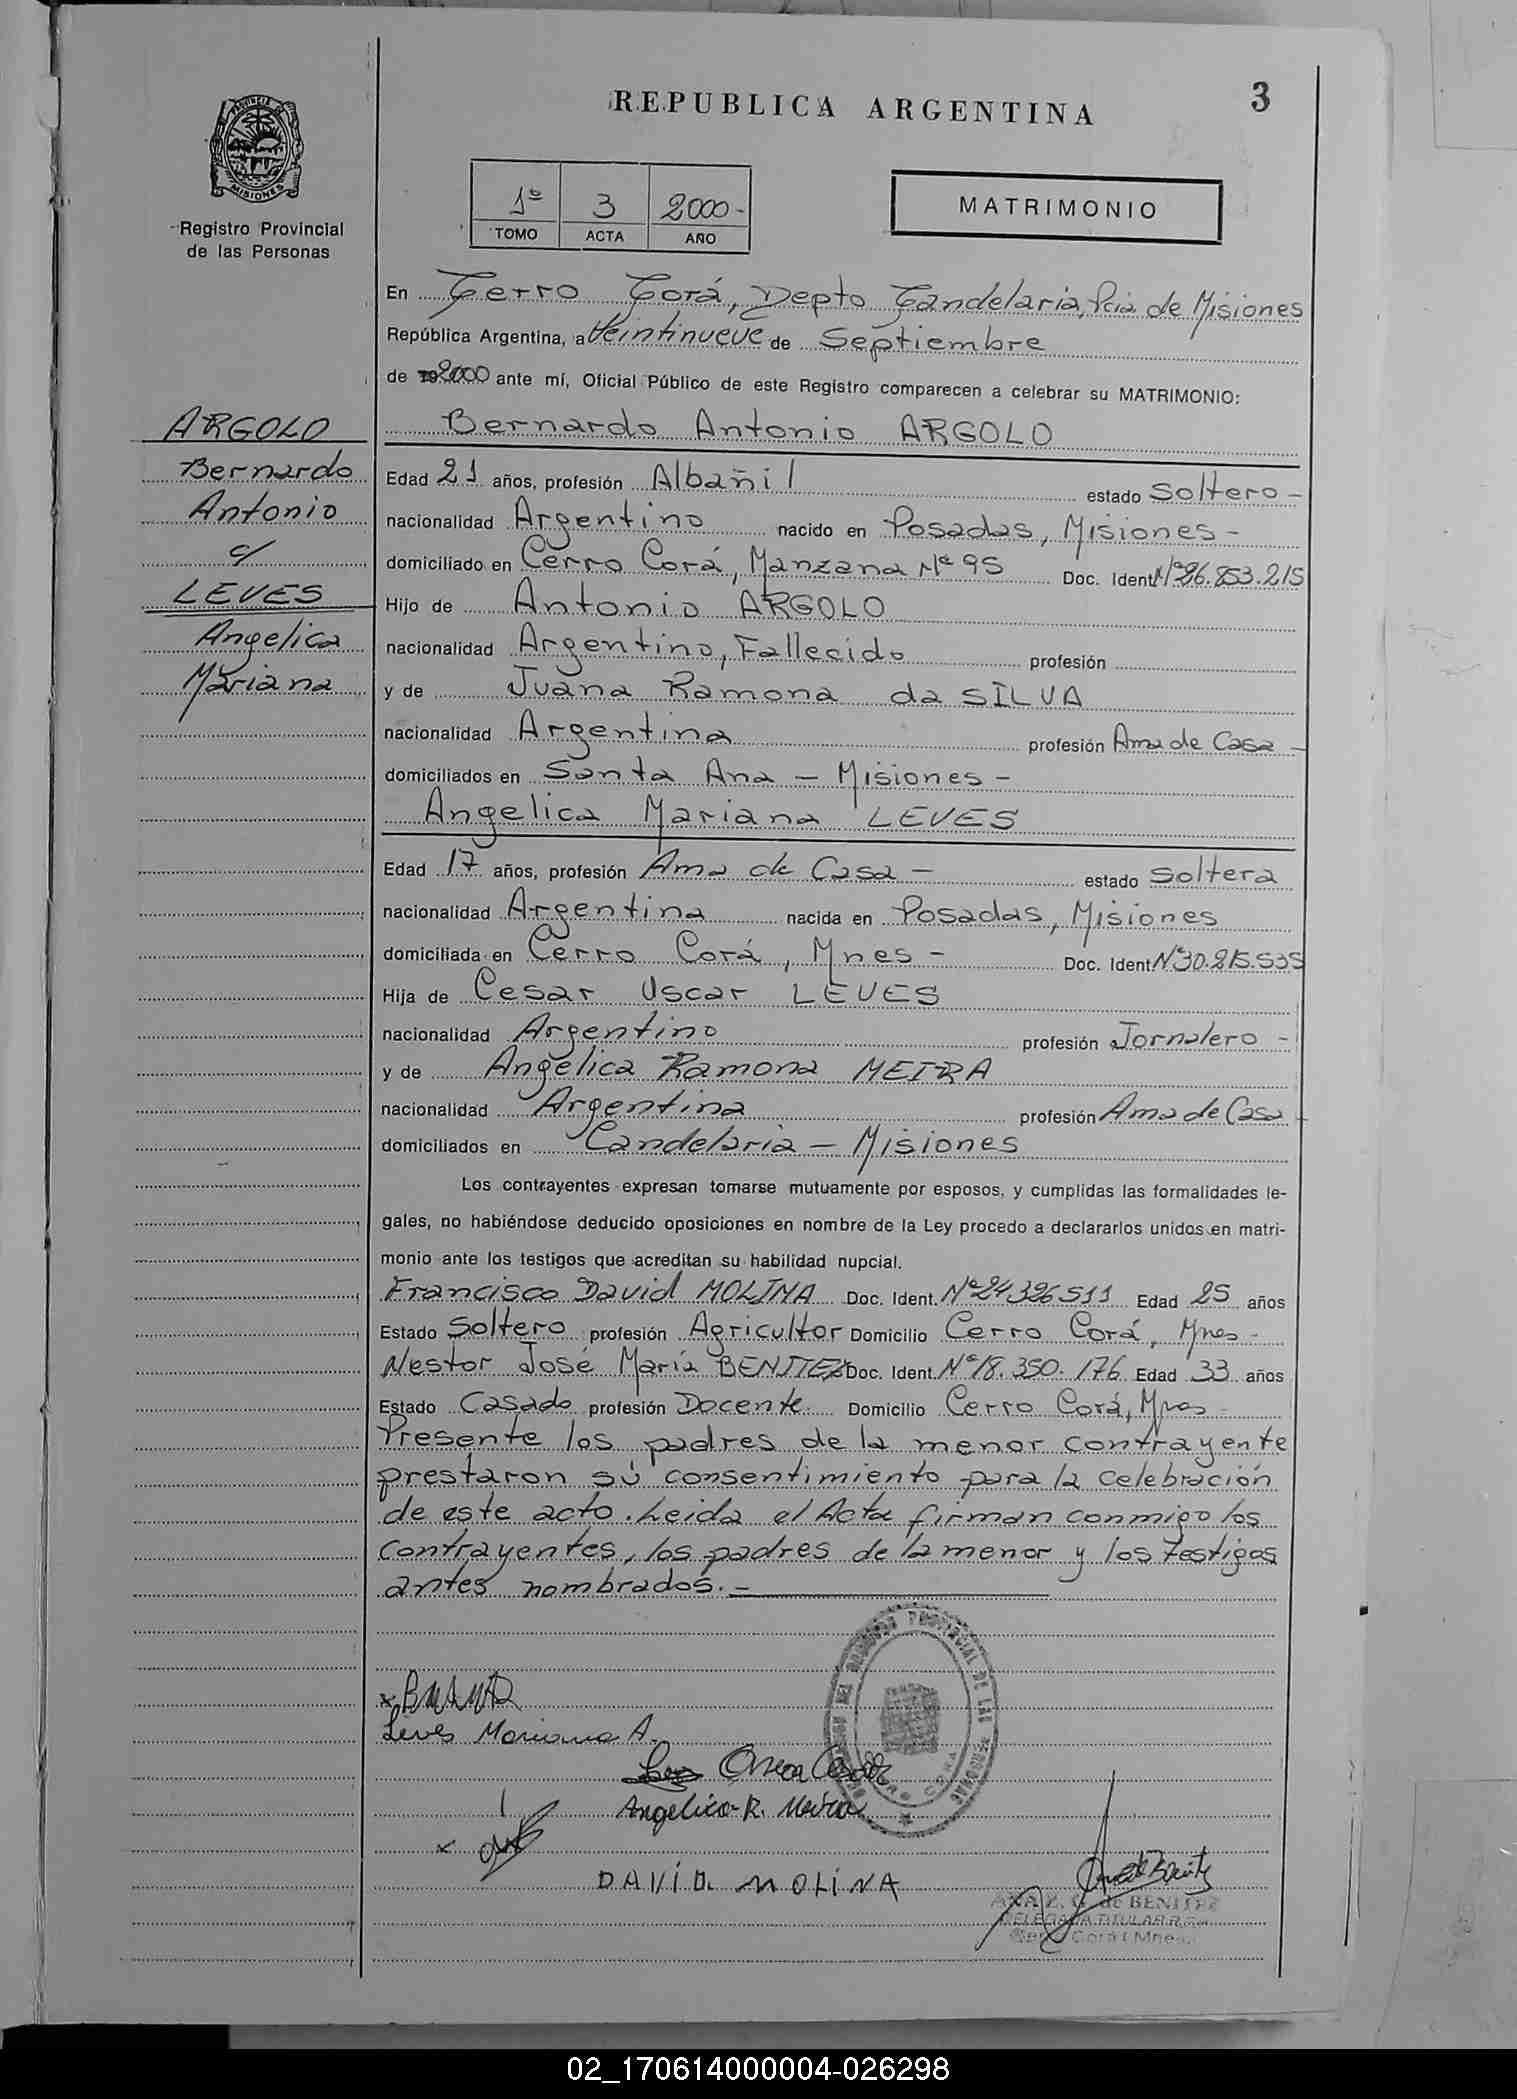 REPUBLICA ARGENTINA
3
PROVINCIA DE
MISIONES
Registro Provincial
de las Personas
1º 3 2000-
TOMO ACTA AÑO
MATRIMONIO
En Cerro Corá, Depto Candelaria, Pcia de Misiones
República Argentina, a Veintinueve de Septiembre
de 2000 ante mí, Oficial Público de este Registro comparecen a celebrar su MATRIMONIO:
ARGOLO
Bernardo
Antonio
c/
LEVES
Angelica
Mariana
Bernardo Antonio ARGOLO
Edad 21 años, profesión Albañil estado Soltero-
nacionalidad Argentino nacido en Posadas, Misiones-
domiciliado en Cerro Corá, Manzana Nº 95 Doc. Ident. Nº 26.853.215
Hijo de Antonio ARGOLO
nacionalidad Argentino, Fallecido profesión
y de Juana Ramona da SILVA
nacionalidad Argentina profesión Ama de Casa-
domiciliados en Santa Ana - Misiones-
Angelica Mariana LEVES
Edad 17 años, profesión Ama de Casa - estado Soltera
nacionalidad Argentina nacida en Posadas, Misiones
domiciliada en Cerro Corá, Mnes- Doc. Ident. Nº 30.215.535
Hija de Cesar Oscar LEVES
nacionalidad Argentino profesión Jornalero-
y de Angelica Ramona MEIRA
nacionalidad Argentina profesión Ama de Casa-
domiciliados en Candelaria - Misiones
Los contrayentes expresan tomarse mutuamente por esposos, y cumplidas las formalidades le-
gales, no habiéndose deducido oposiciones en nombre de la Ley procedo a declararlos unidos en matri-
monio ante los testigos que acreditan su habilidad nupcial.
Francisco David MOLINA Doc. Ident. Nº 24.326.511 Edad 25 años
Estado Soltero profesión Agricultor Domicilio Cerro Corá, Mnes-
Nestor José María BENITEZ Doc. Ident. Nº 18.350.176 Edad 33 años
Estado Casado profesión Docente Domicilio Cerro Corá, Mnes-
Presente los padres de la menor contrayente
prestaron su consentimiento para la celebración
de este acto. Leida el Acta firman conmigo los
contrayentes, los padres de la menor y los testigos
antes nombrados.-
Leves Mariana A.
Angelica R. Meira
DAVID MOLINA
ANA Z. G. de BENITEZ
DELEGADA TITULAR R.
Cerro Corá (Mnes.)
02_170614000004-026298